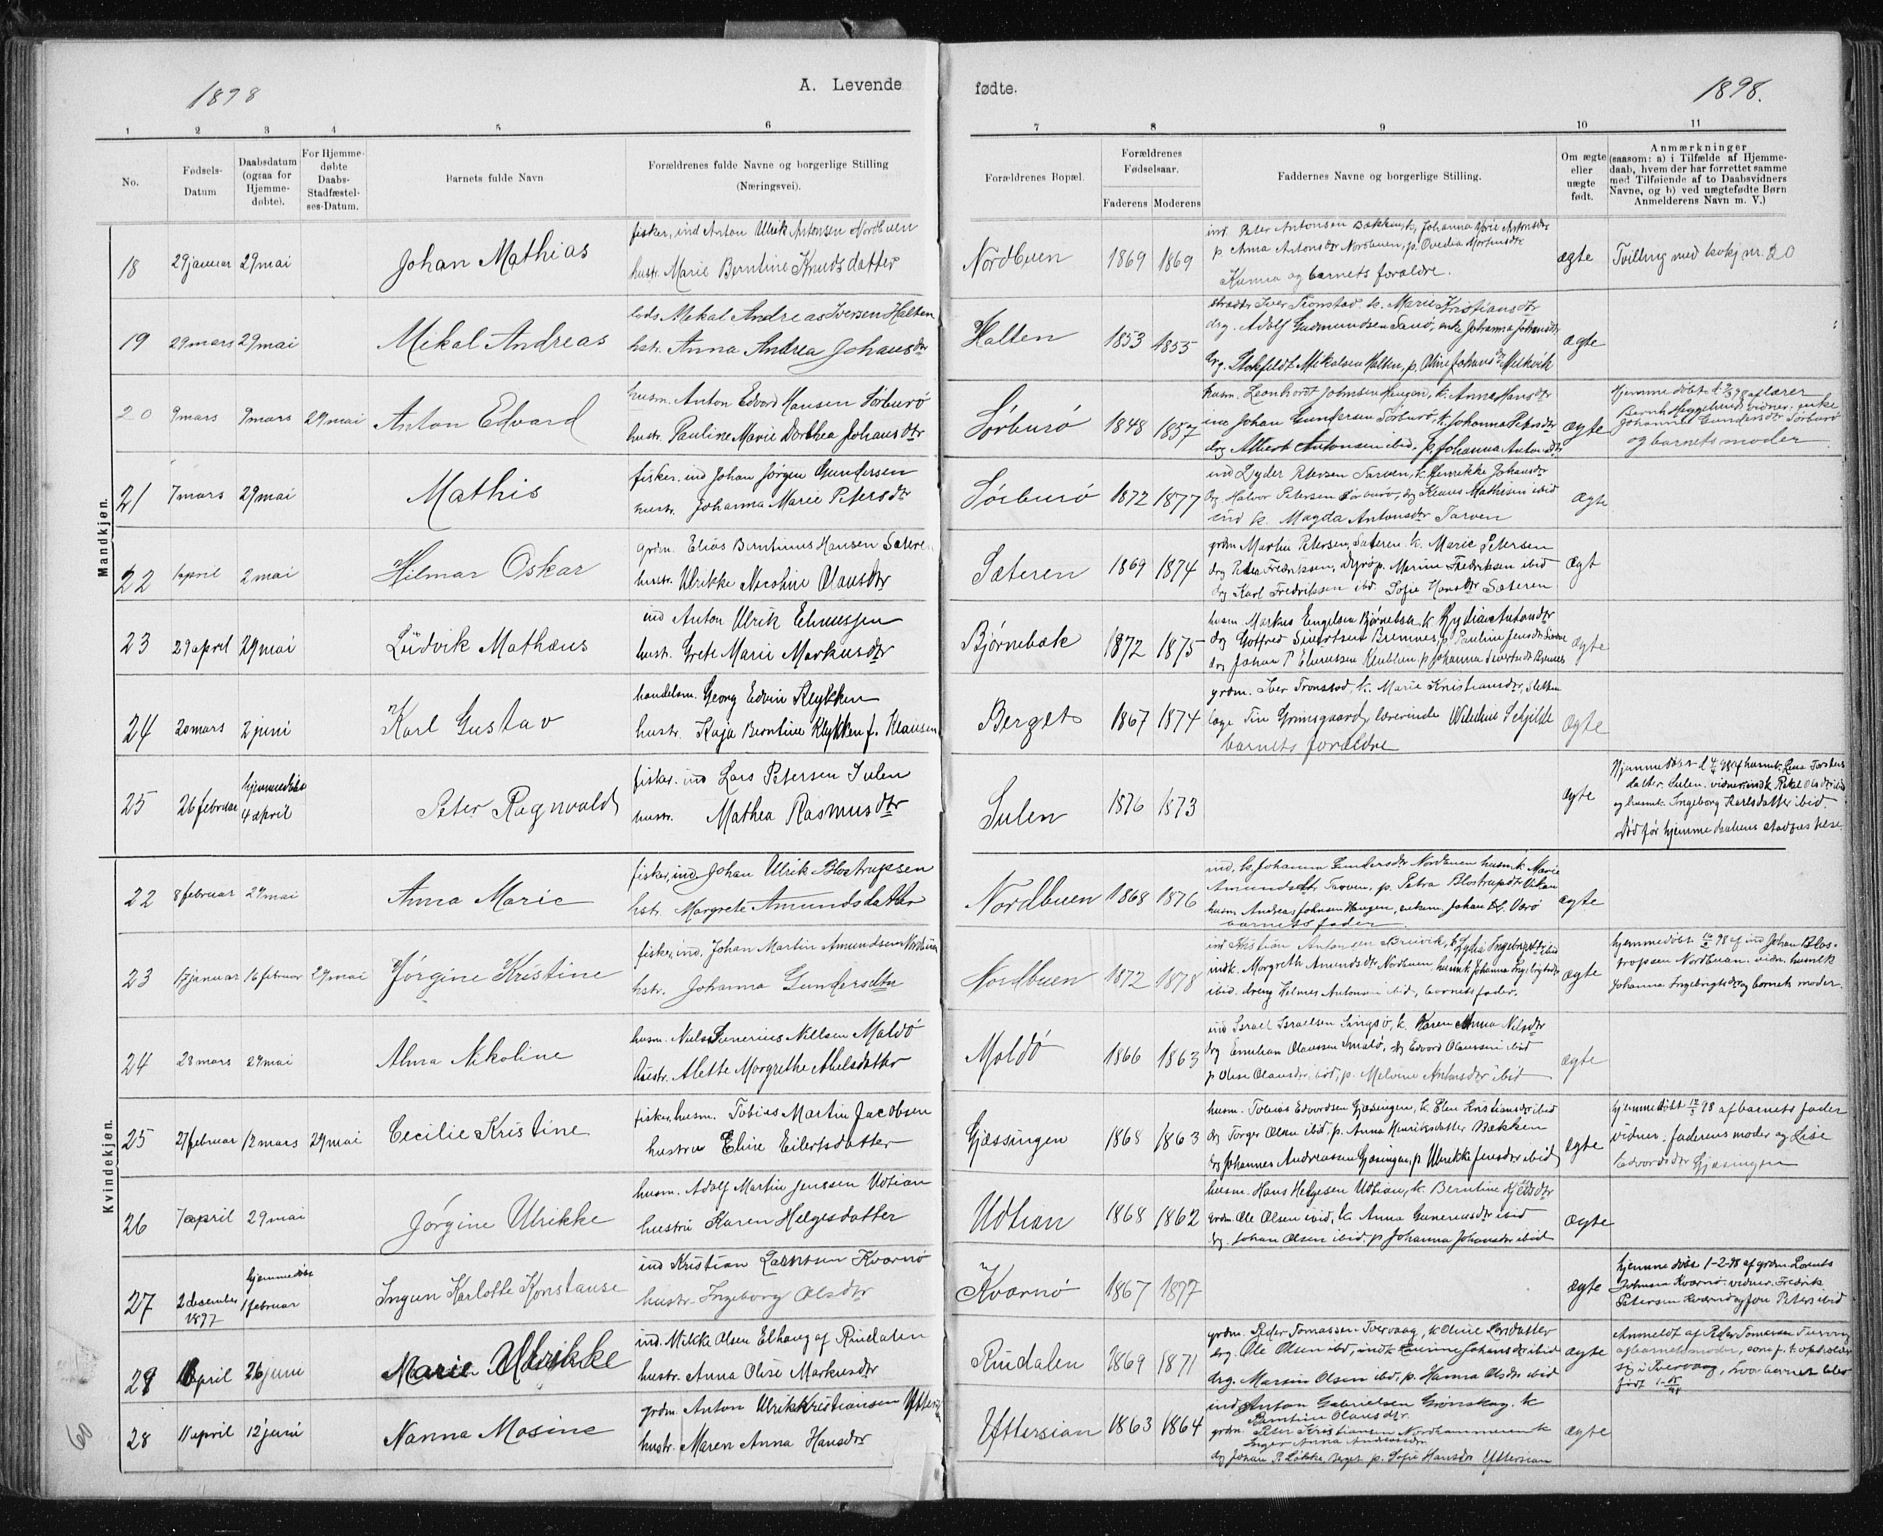 1898
A. Levende
fødte.
1898.
1 2 3 4 5 6 7 8 9 10 11
No.
Fødsels-Datum
Daabsdatum (ogsaa for Hjemme-døbte).
For Hjemme-døbte Daabs-Stadfæstel-ses-Datum.
Barnets fulde Navn
Forældrenes fulde Navne og borgerlige Stilling (Næringsvei).
Forældrenes Bopæl.
Forældrenes Fødselsaar.
Faderens Moderens
Faddernes Navne og borgerlige Stilling.
Om ægte eller uægte født.
Anmærkninger (saasom: a) i Tilfælde af Hjemme-daab, hvem der har forrettet samme med Tilføiende af to Daabsvidners Navne, og b) ved uægtefødte Børn Anmelderens Navn m. V.)
Mandkjøn.
18 29 januar 29 mai Johan Mathias
fisker, ind Anton Ulrik Antonsen Nordbuen
hustr. Marie Berntine Knudsdatter
Nordbuen 1869 1869
ind Peter Antonsen Bakken, k. Johanna Marie Antonsdtr
p Anna Antonsdtr Nordbuen, p. Ovedia Mortensdtr
Kunna og barnets forældre.
ægte Tvilling med kvkj nr. 20
19 29 mars 29 mai Mikal Andreas
lods Mikal Andreas Iversen Halten
hstr. Anna Andrea Johansdtr
Halten 1853 1855
Iver Tronstad. k. Marie Kristiansdtr
drg. Adolf Gudmundsen Sanø, enke Johanna Johansdtr
drg. Stokfeldt Mikalsen Halten, p. Oline Johansdtr Melkvik
ægte
20 9 mars 9 mars 29 mai Anton Edvard
husm. Anton Edvard Hansen Sørburø
hustr. Pauline Marie Dorthea Johansdtr
Sørburø 1848 1857
husm. Leonhard Johnsen Haugen, k. Anna Hansdtr
ind Johan Gundersen Sørburø, k. Johanna Petersdtr
drg Albert Antonsen ibid. p. Johanna Antonsdtr
ægte
Hjemmedøbt d. 9/3 98 af lærer
Bernh Heggelund, vidner, enke
Johanna Gundersdtr Sørburø
og barnets moder
21 7 mars 29 mai Mathis
fisker. ind Johan Jørgen Gundersen
hustr. Johanna Marie Petersdtr
Sørburø 1872 1877
ind Lyder Petersen Tarven, k. Henrikke Johansdtr
drg Halvor Petersen Sørburø, drg Klaus Mathisen ibid
ind k. Magda Antonsdtr Tarven
ægte
22 1 april 2 mai Hilmar Oskar
grdm. Elias Berntinus Hansen Sæteren
hustr. Ulrikke Nicoline Olausdtr
Sæteren 1869 1874
grdm Martin Petersen, Sæteren k. Marie Petersen
drg Peter Fredriksen, Dyrø p. Marine Fredriksen ibid
drg Karl Fredriksen ibd. Sofie Hansdtr Sæteren
ægt
23 29 april 29 mai Ludvik Mathæus
ind Anton Ulrik Eliassen
hustr. Grete Marie Markusdtr
Bjørnebak 1872 1875
husm Markus Engelsen Bjørnebak k Lydia Antondtr
drg Gotfred Sivertsen Bremnes, p. Pauline Jensdtr
drg Johan P Eliassen, p Johanna Sivertsdtr Bremnes
ægte
24 20 mars 2 juni Karl Gustav
handelsm. Georg Edvin Klykken
hustr. Kaja Berntine Klykken f. Klausen
Berget 1867 1874
grdm. Iver Tronstad, k. Marie Kristiansdr,
læge Tin Grimsgaard, lærerinde Vilhelmine Schjelde
barnets forældre
ægte
25 26 februar hjemmedøbt 4 april Peter Ragnvald
fisker. ind Lars Petersen Sulen
hustr. Mathea Rasmusdtr
Sulen 1876 1873
ægte
Hjemmedøbt d. 4/4 98 af husmk. Lena Torsteins
datter, Sulen. vidner: indk. Rikel Olsdtr ibid
og husmk. Ingeborg Karlsdatter ibid.
død før hjemmedaabens stadfæstelse
Kvindekjøn.
22 8 februar 29 mai Anna Marie
fisker, ind Johan Ulrik Blostrupsen
hstr. Margrete Amundsdatter
Nordbuen 1868 1876
ind, k. Johanna Gundersdtr Nordbuen husm. k. Marie
Amundsdtr Tarven, p. Petra Blostrupsdtr Vikan
husm Andreas Johnsen Haugen, enkem. Johan Værø
barnets fader.
ægte
23 17 januar 16 februar 29 mai Jørgine Kristine
fisker, ind. Johan Martin Amundsen Nordbuen
hstr. Johanna Gundersdtr
Nordbuen 1872 1878
ind Kristian Antonsen Breivik, k. Lydia Ingebrigtsdtr ibid
indk. Margreth Amundsdtr Nordbuen husmk. Johanna Ingebrigtsdtr
ibid. dreng Helmer Antonsen ibid, barnets fader.
ægte
hjemmedøbt 16/2 98 af ind Johan Blos-
tropsen Nordbuen. vidn. husmk
Johanna Ingebrigtsdtr og barnets moder.
24 23 mars 29 mai Alma Nikoline
husm. Niels Severius Nilsen Maldø
hustr. Alette Margrethe Abelsdatter
Maldø 1866 1863
ind Israel Israelsen Singsø, k. Karen Anna Nilsdtr
drg Emilian Olaussen Smalø, drg Edvard Olaussen ibid
p Oline Olausdtr ibid, p. Melvine Antonsdtr ibid
ægte
25 27 februar 12 mars 29 mai Cecilie Kristine
fisker, husm. Tobias Martin Jacobsen
hustru Eline Eilertsdatter
Gjæssingen 1868 1863
husm. Tobias Edvardsen Gjæsingen, k. Elen Kristiansdtr ibid
drg Torger Olsen ibid. p. Anna Henriksdatter Bakken
drg Johannes Andreassen Gjæsingen, p. Ulrikke Jensdtr ibid
ægte
hjemmedøbt 12/3 98 af barnets fader
vidner. faderens moder og Lise
Edvardsdtr Gjæsingen
26 7 april 29 mai Jørgine Ulrikke
husm. Adolf Martin Jenssen Udtian
hustru Karen Helgesdatter
Udtian 1868 1862
husm. Hans Helgesen Udtian, k. Berntine Kjelsdtr
grdm. Ole Olsen ibid, k. Anna Gunerusdtr ibid
drg. Johan Olsen ibid. p Johanna Johansdtr ibid
ægte
27 2 december 1897 hjemmedøbt 1 februar Ingun Karlotte Konstanse
ind Kristian Larentsen Kvarnø
hustr. Ingeborg Olsdtr
Kvarnø 1867 1877
ægte
hjemmedøbt 1-2-98 af grdm. Lorents
Johnsen Kvarnø. vidner. Fredrik
Petersen Kværnø og Jon Peters ibid
29 april 26 juni Marie Ulrikke
ind. Mikke Olsen Elhaug af Rindalen
hustr. Anna Olise Markusdtr
Rindalen 1869 1871
grdm. Peder Tomassen Tvervaag, k. Oline Larsdatter
drg. Ole Olsen ibd, indk Lovine Johansdtr ibid
drg. Martin Olsen ibid, p. Hanna Olsdtr ibid
ægte
Anmeldt af Peder Tomassen Tvervaag
og barnets moder, som f. t. opholder
sig i Tvervaag, hvor barnet blev
født
28 11 april 12 juni Nanna Mosine
grdm. Anton Ulrik Kristiansen Yttersian
hustr. Maren Anna Hansdtr
Yttersian 1863 1864
ind Anton Gabrielsen Grønskag, k
Berntine Olausdtr.
grdm. Peter Kristiansen Nordhammeren k
Inger Anna Andersdtr
drg Johan P. Løkke, Berget p. Sofie Hansdtr Yttersian
ægte
60